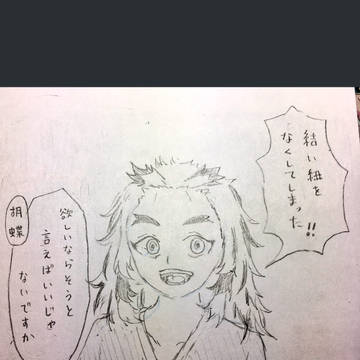 結い紐を
なくしてしまった!!
欲しいならそうと
言えばいいじゃ
ないですか
胡蝶